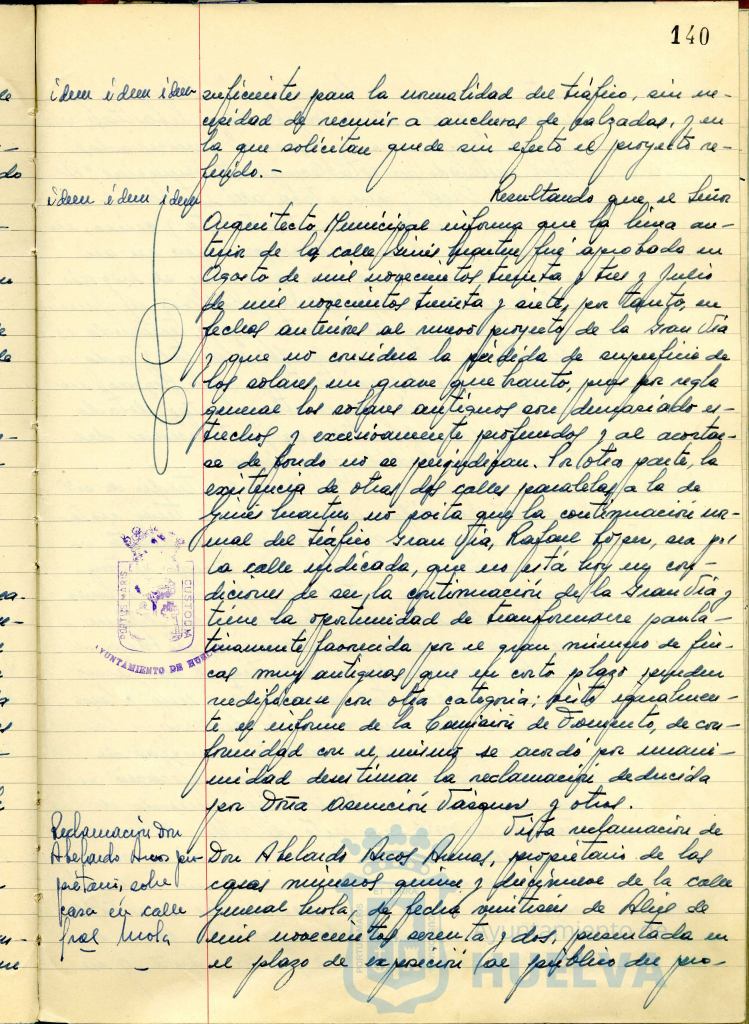 140
idem idem idem
suficientes para la normalidad del tráfico, sin ne-
cesidad de recurrir a anchuras de calzadas, y en
la que solicitan quede sin efecto el proyecto re-
ferido.-
idem idem idem
Resultando que el Señor
Arquitecto Municipal informa que la linea an-
terior de la calle Ginés Martín fué aprobada en
Agosto de mil novecientos treinta y tres y Julio
de mil novecientos treinta y siete, por tanto, en
fechas anteriores al nuevo proyecto de la Gran Vía
y que no considera la pérdida de superficie de
los solares, un grave quebranto, pues por regla
general los solares antiguos son demasiado es-
trechos y excesivamente profundos y al acortar-
se de fondo no se perjudican. Por otra parte, la
existencia de otras dos calles paralelas a la de
Ginés Martín no quita que la continuación nor-
mal del tráfico Gran Vía, Rafael López, sea por
la calle indicada, que no está hoy en con-
diciones de ser la continuación de la Gran Vía y
tiene la oportunidad de transformarse paula-
tinamente favorecida por el gran número de fin-
cas muy antiguas que en corto plazo pueden
reedificarse con otra categoría; visto igualmen-
te el informe de la Comisión de Fomento, de con-
formidad con el mismo se acordó por unani-
midad desestimar la reclamación deducida
por Doña Asunción Vázquez y otros.
PORTUS MARIS CUSTODIA
AYUNTAMIENTO DE HUELVA
Reclamación Don
Abelardo Arcos pro-
pietario, sobre
casa en calle
Gral Mola
Vista reclamación de
Don Abelardo Arcos Arenas, propietario de las
casas números quince y diecinueve de la calle
General Mola, de fecha veintiseis de Abril de
mil novecientos sesenta y dos, presentada en
el plazo de exposición al público del pro-
Ayuntamiento de
HUELVA